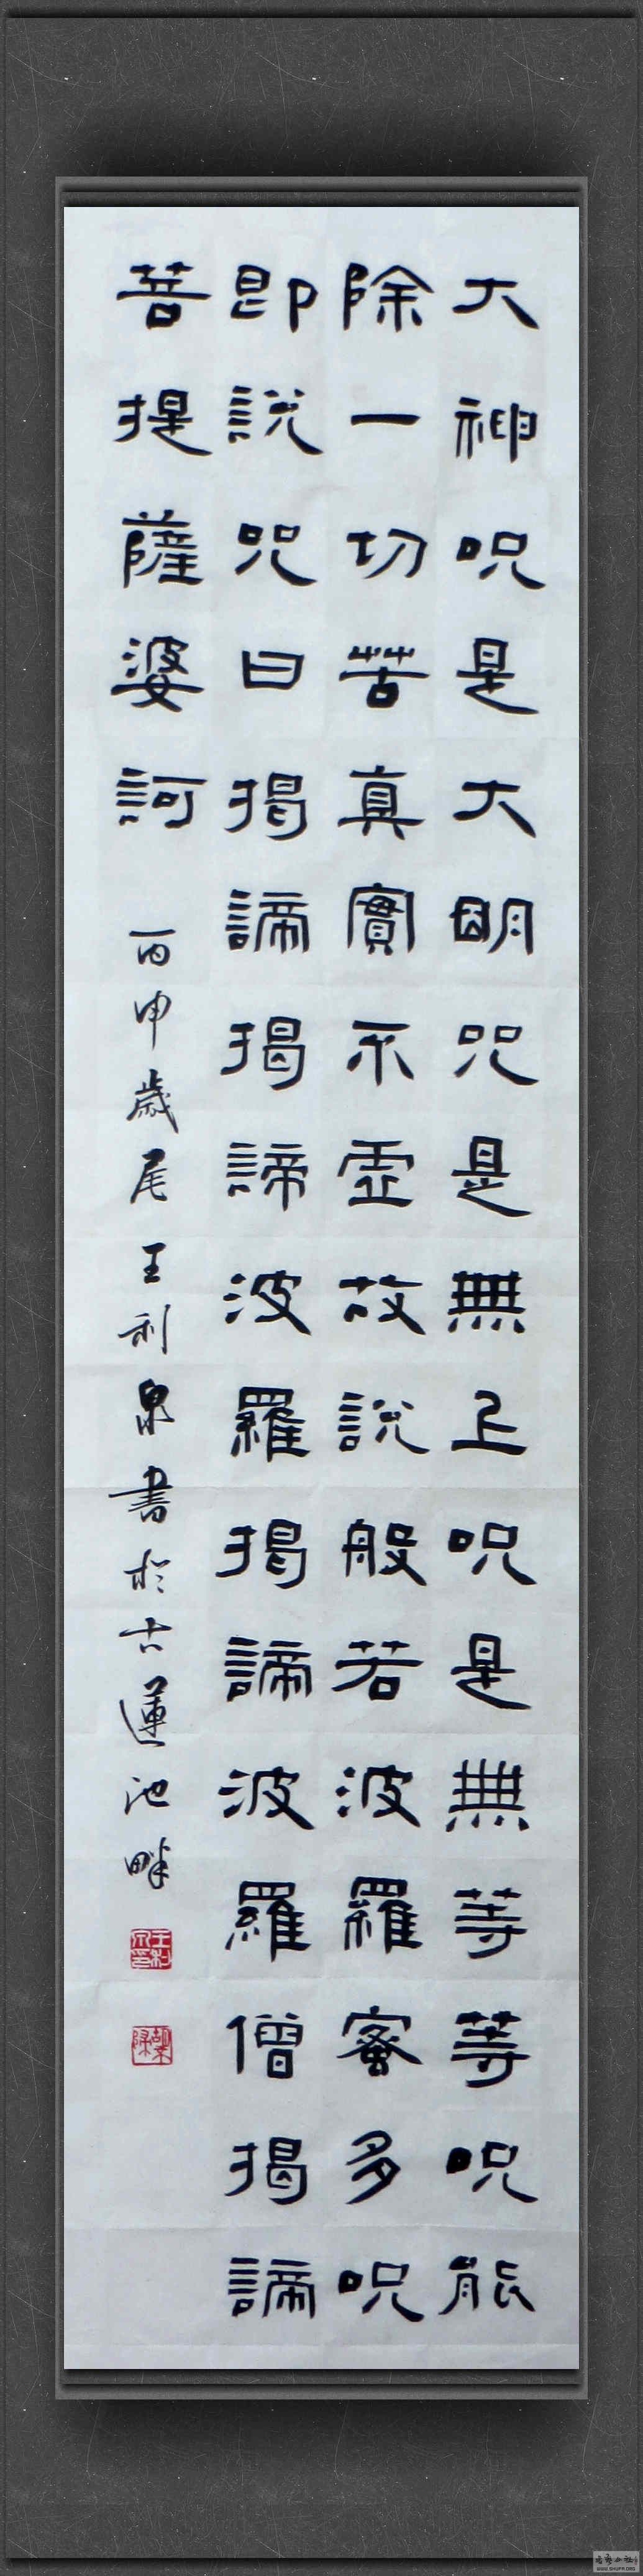 大神呪是大明咒是無上呪是無等等呪能
除一切苦真實不虛故說般若波羅蜜多呪
即說咒曰揭諦揭諦波羅揭諦波羅僧揭諦
菩提薩婆訶
丙申歲尾王利泉書於古蓮池畔
WWW.SHUFA.ORG